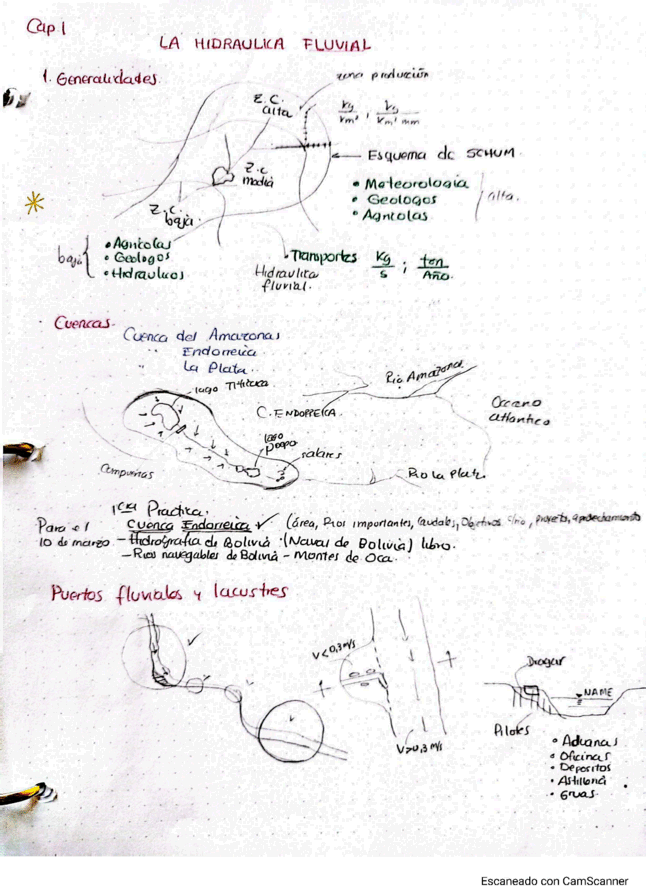 Cap. 1
LA HIDRAULICA FLUVIAL
1. Generalidades.
zona producción
Z.C. alta
kg/km² ; kg/km² mm
Esquema de SCHUM.
Z.C. media
• Meteorologia
• Geologos
• Agricolas.
alta.
Z.C. baja.
baja
• Agricolas
• Geologos
• Hidraulicos
• Transportes kg/s ; ton/Año.
Hidraulica fluvial.
Cuencas.
Cuenca del Amazonas
" Endorreica
" La Plata.
lago Titicaca
Rio Amazonas
C. ENDORREICA.
Oceano atlantico
lago poopo
salares
Rio la Plata
1era Practica.
Para el 10 de marzo
Cuenca Endorreica ✓ (área, Rios importantes, caudales, Objetivos proyecto, aprovechamiento
– Hidrografía de Bolivia (Naval de Bolivia) libro.
– Rios navegables de Bolivia – Montes de Oca.
Puertos fluviales y lacustres
V<0,3 m/s
V>0,3 m/s
Dragar
NAME
Pilotes
• Aduanas
• Oficinas
• Depositos
• Astillero
• Gruas.
Escaneado con CamScanner